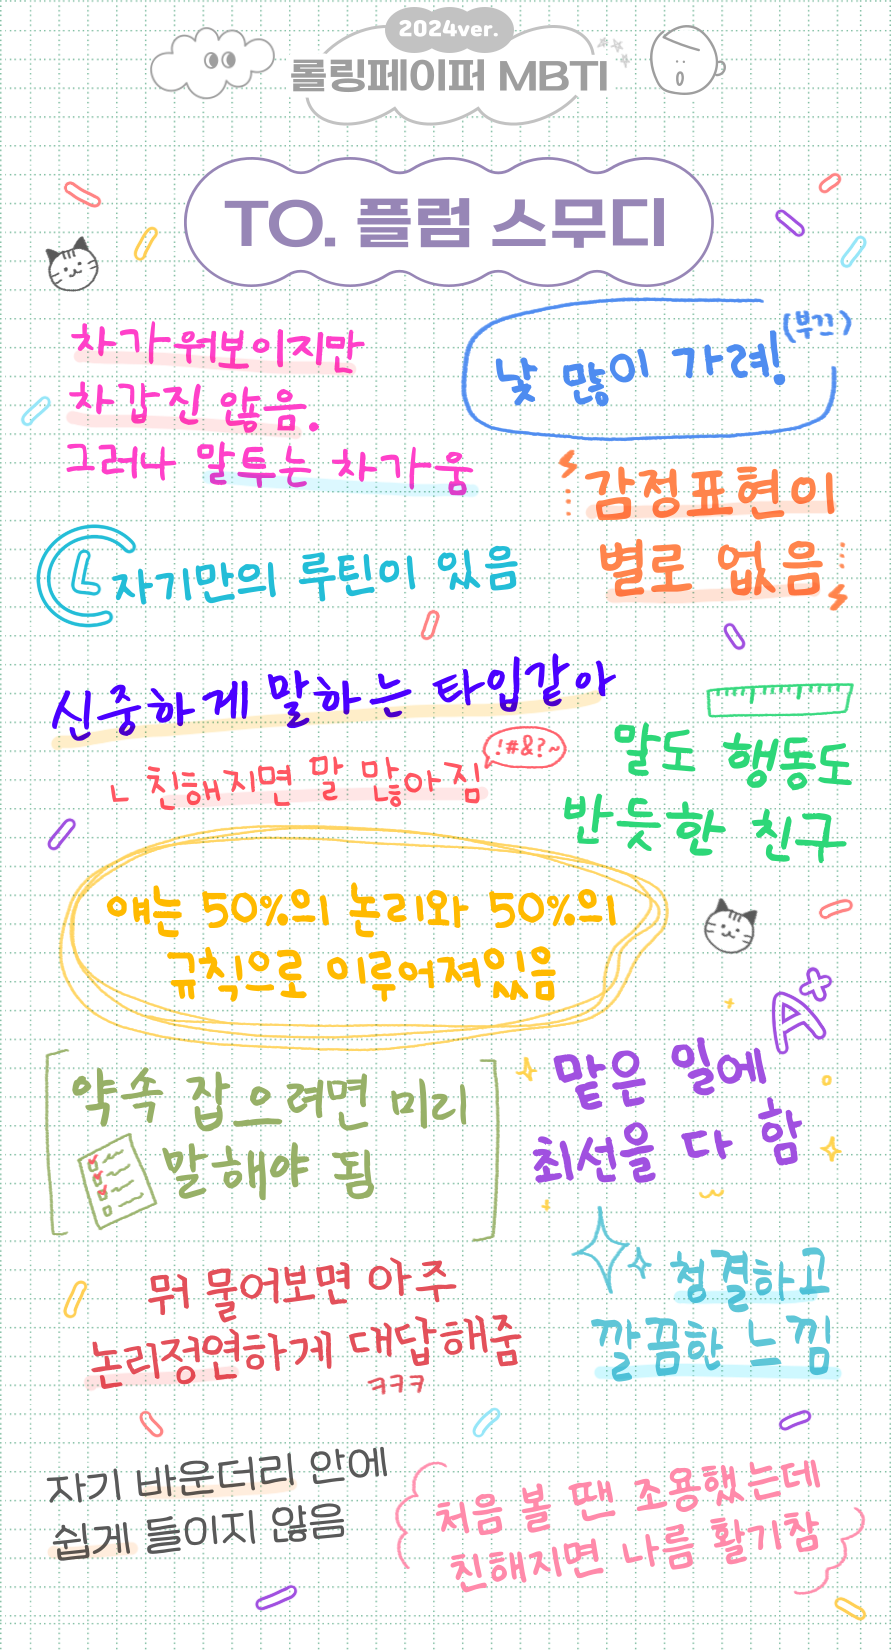 2024ver.
롤링페이퍼 MBTI
TO. 플럼 스무디
차가워보이지만
차갑진 않음.
그러나 말투는 차가움
낯 많이 가려! (부끄)
감정표현이
별로 없음
자기만의 루틴이 있음
신중하게 말하는 타입같아
ㄴ 친해지면 말 많아짐
!#&?~
말도 행동도
반듯한 친구
얘는 50%의 논리와 50%의
규칙으로 이루어져있음
A+
맡은 일에
최선을 다 함
약속 잡으려면 미리
말해야 됨
뭐 물어보면 아주
논리정연하게 대답해줌
ㅋㅋㅋ
청결하고
깔끔한 느낌
자기 바운더리 안에
쉽게 들이지 않음
처음 볼 땐 조용했는데
친해지면 나름 활기참